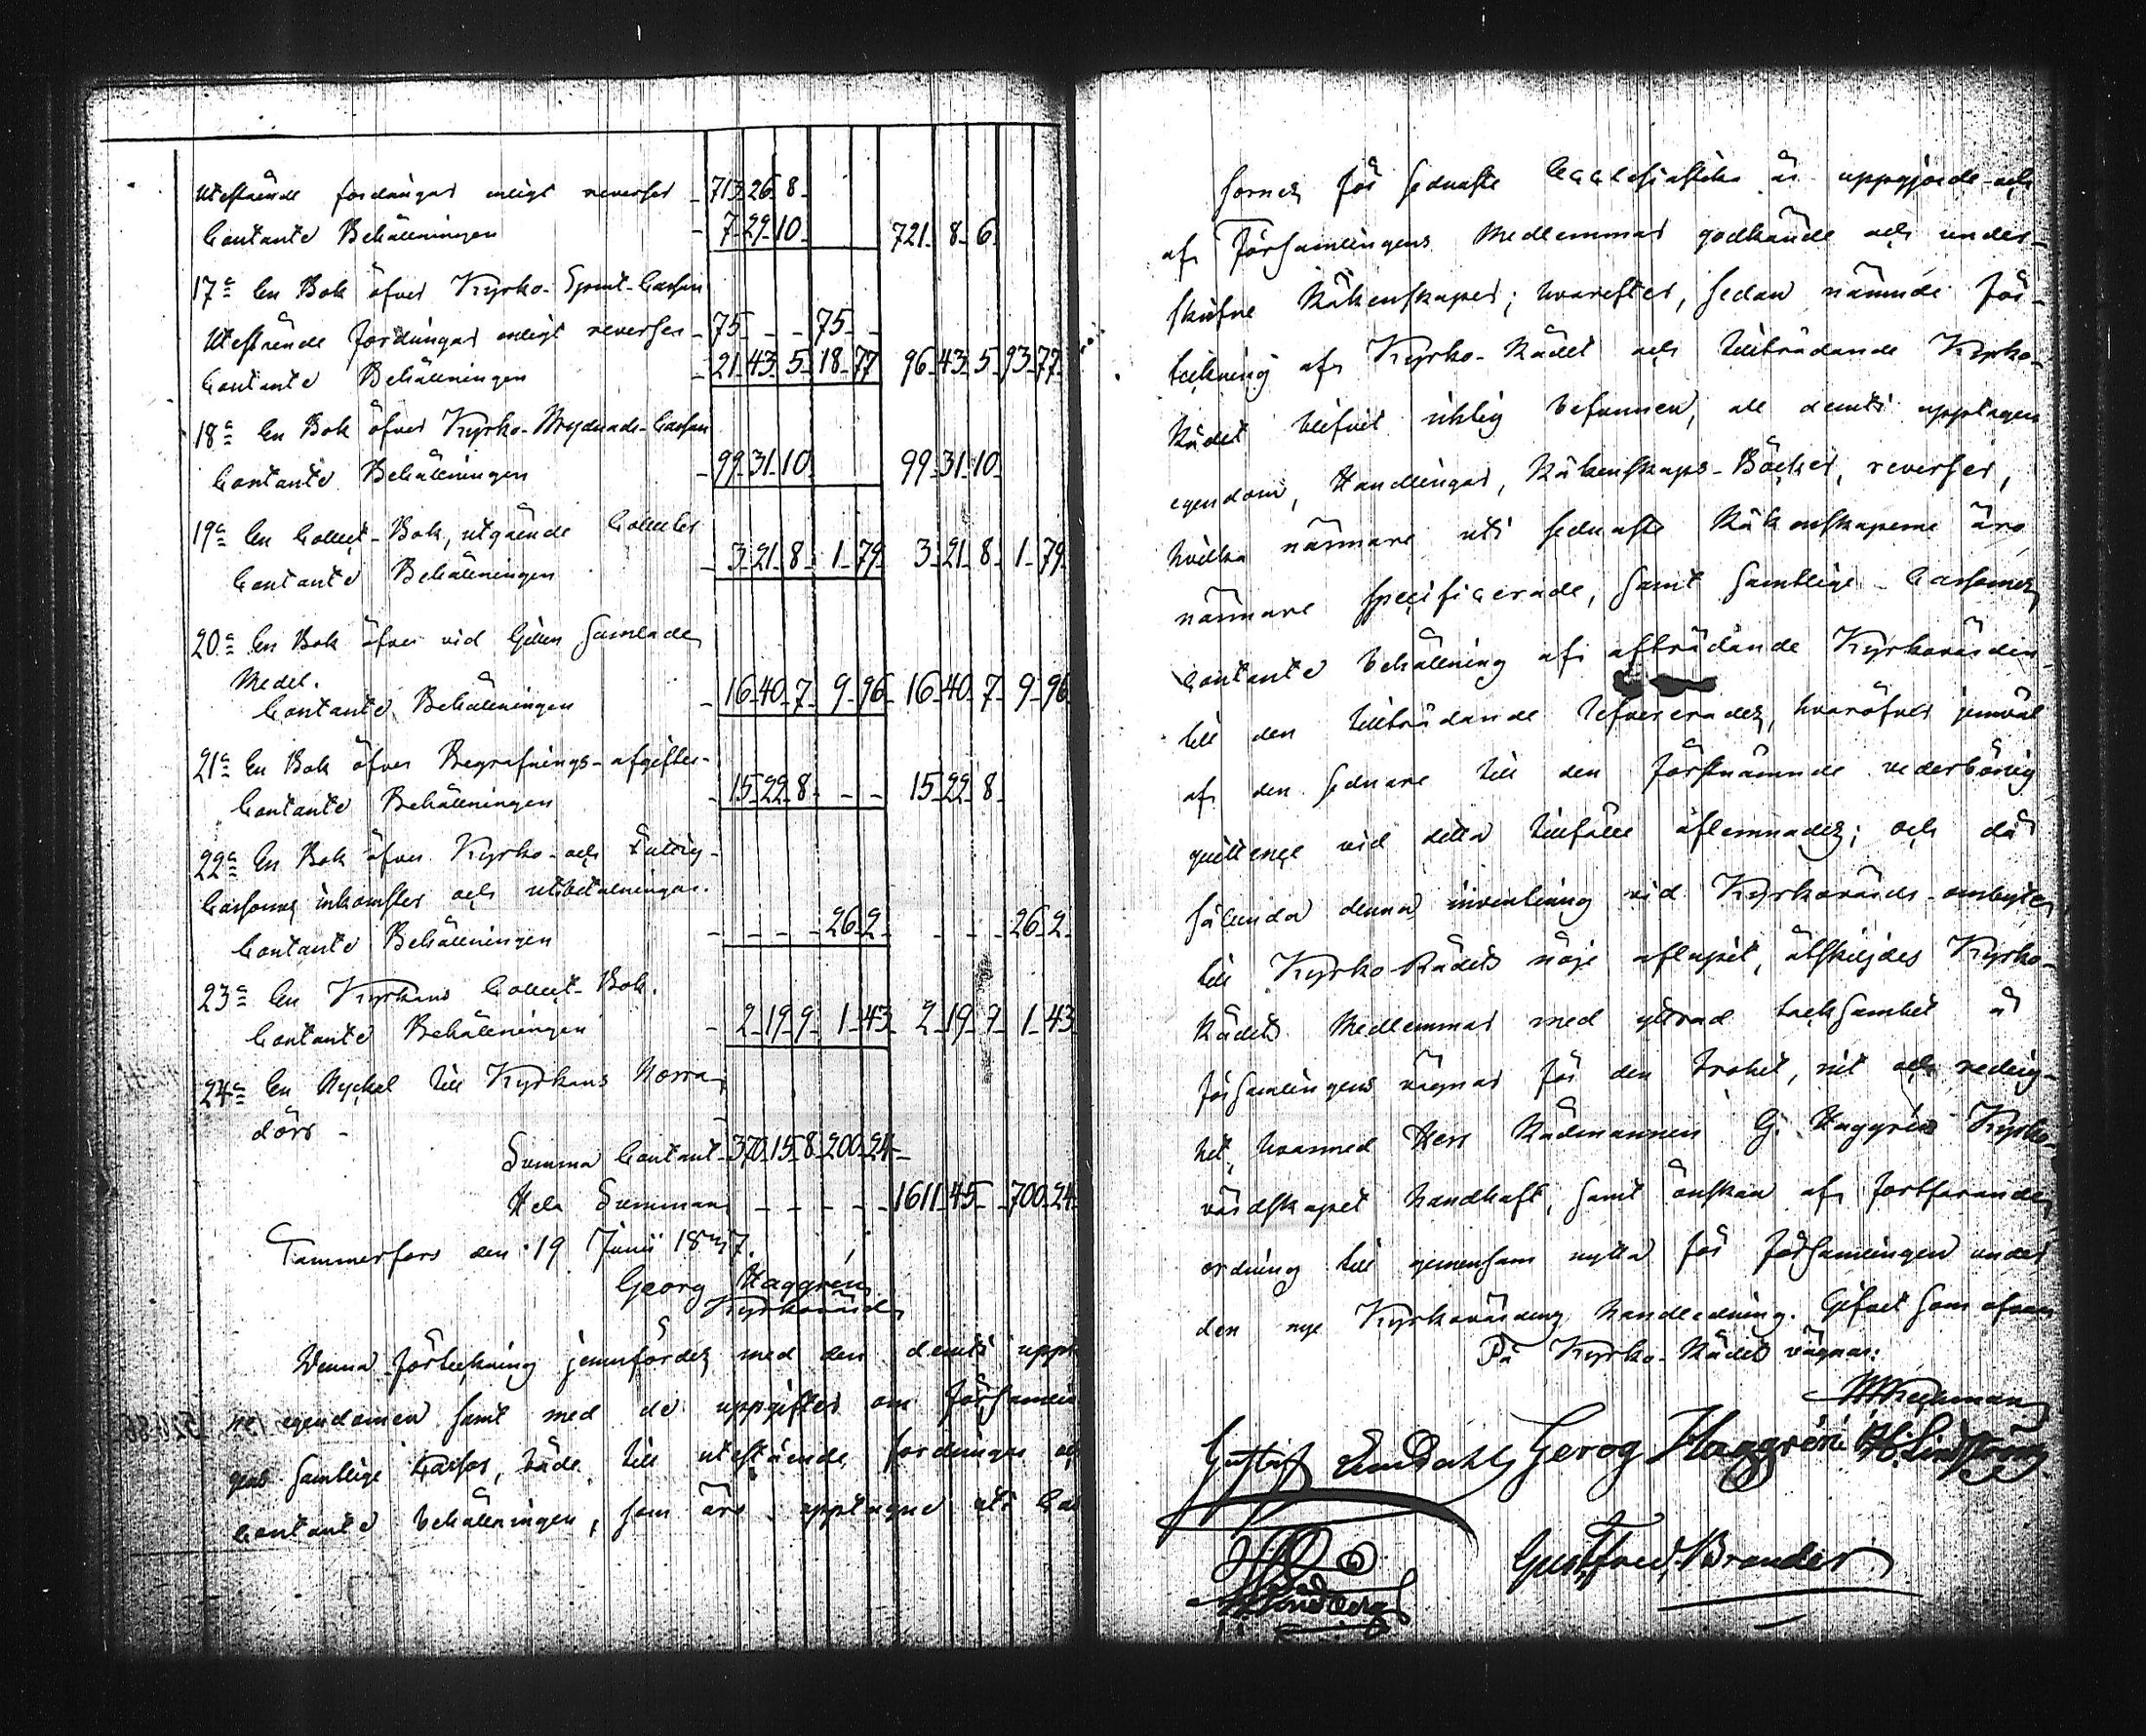 Utestående fordringar enligt reverser - 713. 26. 8.
Contante Behållningen - 7. 29. 10. 721. 8. 6.
17:e En Bok öfver Kyrko-Spml-Cassan
Utestående fordringar enligt reverser - 75. - - 75. -
Contante Behållningen - 21. 43. 5. 18. 77. 96. 43. 5. 93. 77.
18:e En Bok öfver Kyrko-Bygnads-Cassan
Contante Behållningen - 99. 31. 10. 99. 31. 10.
19:e En Collect-Bok, utgående Collecter
Contante Behållningen - 3. 21. 8. 1. 79. 3. 21. 8. 1. 79.
20:e En Bok öfver vid Gillen Samlade
Medel.
Contante Behållningen - 16. 40. 7. 9. 96. 16. 40. 7. 9. 96.
21:e En Bok öfver Begrafnings-afgifter
Contante Behållningen - 15. 22. 8. - - 15. 22. 8.
22:e En Bok öfver Kyrko- och Fattig-
Cassornes inkomster och utbetalningar.
Contante Behållningen - - - - 26. 2. - - - 26. 2.
23:e En Kyrkans Collect-Bok.
Contante Behållningen - 2. 19. 9. 1. 43. 2. 19. 9. 1. 43.
24:e En Nyckel till Kyrkans Norra
dörr -
Summa Contant - 370. 15. 8. 200. 24.
Hela Summan - - - - - 1611. 45. - 700. 24.
Tammerfors den 19 Junii 1847.
Georg Haggrén
Kyrkovärd
Denna förteckning jemnfördes med den deruti uppt
ne egendomen samt med de uppgifter om Församlin
gens samtlige Cassor, både till utestående fordringar och
Contante behållningen, som äro upptagne uti Cas
sornes för sednaste Ecclesiastika år uppgjorde och
af Församlingens Medlemmar godkände och under-
skrifne Räkenskaper; hvarefter, sedan nämnde för-
teckning af Kyrko-Rådet och tillträdande Kyrko-
Rådet blifvit riktig befunnen, all deruti upptagen
egendom, Handlingar, Räkenskaps-Böcker, reverser,
hvilka närmare uti sednaste Räkenskaperne äro
närmare specificerade, samt samtlige Cassornes
Contante behållning af afträdande Kyrkovärden
till den tillträdande lefvererades, hvaröfver jemväl
af den sednare till den förstnämnde vederbörlig
quittence vid detta tillfälle aflemnades; och då
sålunda denna inventering vid Kyrkovärds-ombytet
till Kyrko-Rådets nöje aflupit, åtskiljdes Kyrko-
Rådets Medlemmar med yttrad tacksamhet å
församlingens vägnar för den trohet, nit och redlig-
het, hvarmed Herr Rådmannen G. Haggrén Kyrko-
värdskapet handhaft, samt önskan af fortfarande
ordning till gemensam nytta för församlingen under
den nye Kyrkovärdens handledning. Gifvet som ofvan
På Kyrko-Rådets vägnar:
Gustaf Gerog Haggrén
Gust. Fred. Brander